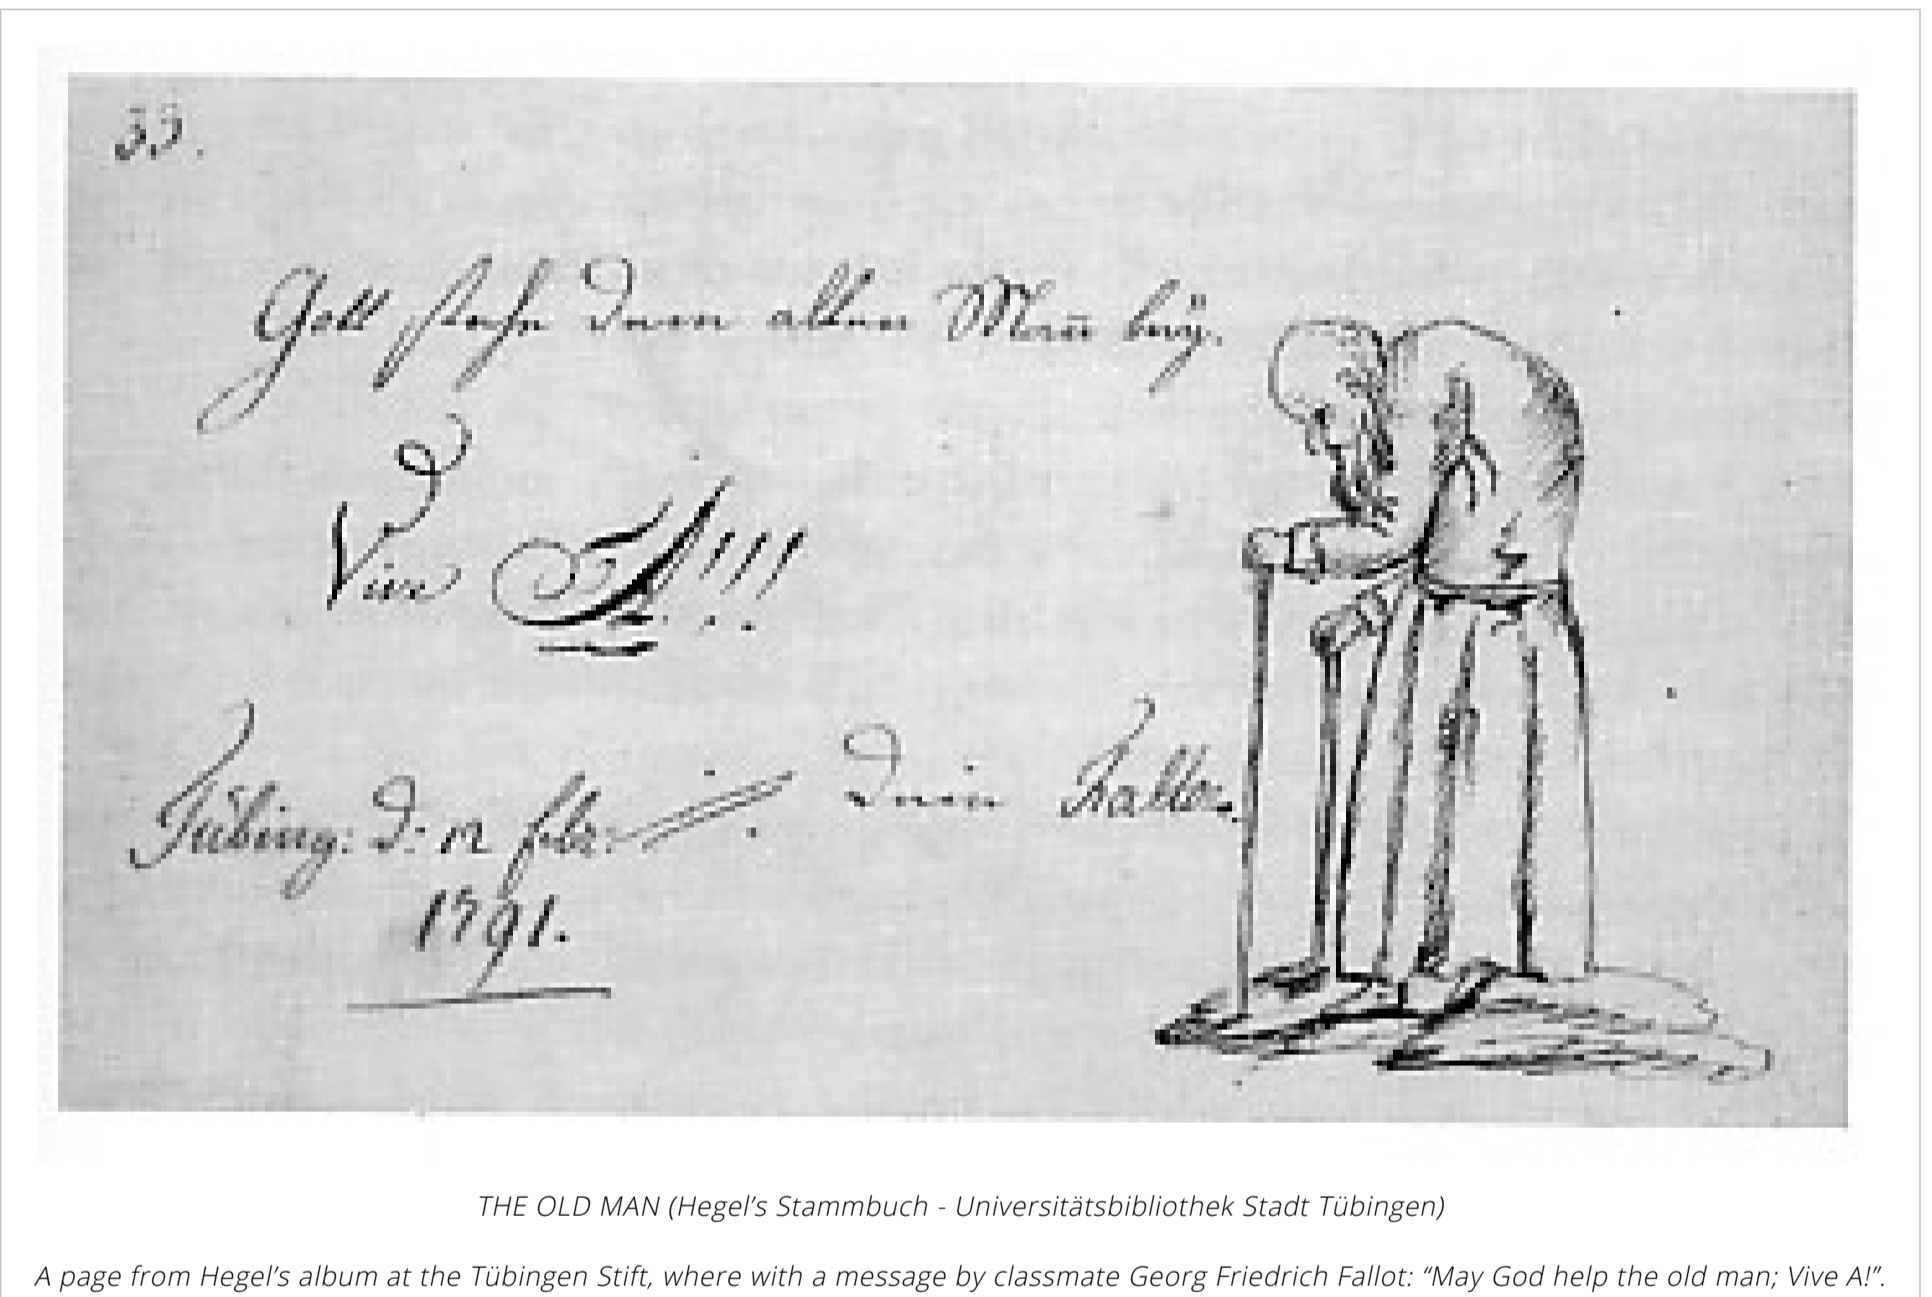 33.
Gott stehe dem alten Mañ bey.
Vive A!!!
Tübing: d: 12 febr.
Dein Fallot.
1791.
THE OLD MAN (Hegel’s Stammbuch - Universitätsbibliothek Stadt Tübingen)
A page from Hegel’s album at the Tübingen Stift, where with a message by classmate Georg Friedrich Fallot: “May God help the old man; Vive A!”.